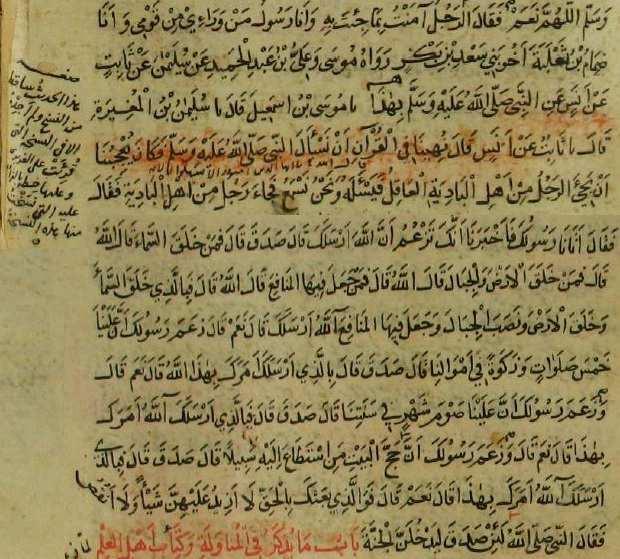 وَسَلَّمَ اللَّهُمَّ نَعَمْ فَقَالَ الرَّجُلُ آمَنْتُ بِمَا جِئْتَ بِهِ وَأَنَا رَسُولُ مَنْ وَرَاءِي مِنْ قَوْمِي وَأَنَا
ضِمَامُ بْنُ ثَعْلَبَةَ أَخُو بَنِي سَعْدِ بْنِ بَكْرٍ رَوَاهُ مُوسَى وَعَلِيُّ بْنُ عَبْدِ الْحَمِيدِ عَنْ سُلَيْمٰنَ عَنْ ثَابِتٍ
عَنْ أَنَسٍ عَنِ النَّبِيِّ صَلَّى اللَّهُ عَلَيْهِ وَسَلَّمَ بِهٰذَا نا مُوسَى بْنُ إِسْمٰعِيلَ قَالَ نا سُلَيْمٰنُ بْنُ الْمُغِيرَةِ
قَالَ نا ثَابِتٌ عَنْ أَنَسٍ قَالَ نُهِينَا فِي الْقُرْآنِ أَنْ نَسْأَلَ النَّبِيَّ صَلَّى اللَّهُ عَلَيْهِ وَسَلَّمَ فَكَانَ يُعْجِبُنَا
أَنْ يَجِيءَ الرَّجُلُ مِنْ أَهْلِ الْبَادِيَةِ الْعَاقِلُ فَيَسْئَلُهُ وَنَحْنُ نَسْمَعُ فَجَاءَ رَجُلٌ مِنْ أَهْلِ الْبَادِيَةِ فَقَالَ
فَقَالَ أَتَانَا رَسُولُكَ فَأَخْبَرَنَا أَنَّكَ تَزْعُمُ أَنَّ اللَّهَ أَرْسَلَكَ قَالَ صَدَقَ قَالَ فَمَنْ خَلَقَ السَّمَاءَ قَالَ اللَّهُ
قَالَ فَمَنْ خَلَقَ الْأَرْضَ وَالْجِبَالَ قَالَ اللَّهُ قَالَ فَمَنْ جَعَلَ فِيهَا الْمَنَافِعَ قَالَ اللَّهُ قَالَ فَبِالَّذِي خَلَقَ السَّمَاءَ
وَخَلَقَ الْأَرْضَ وَنَصَبَ الْجِبَالَ وَجَعَلَ فِيهَا الْمَنَافِعَ آللَّهُ أَرْسَلَكَ قَالَ نَعَمْ قَالَ زَعَمَ رَسُولُكَ أَنَّ عَلَيْنَا
خَمْسَ صَلَوَاتٍ وَزَكٰوةً فِي أَمْوَالِنَا قَالَ صَدَقَ قَالَ بِالَّذِي أَرْسَلَكَ أَمَرَكَ بِهٰذَا اللَّهُ قَالَ نَعَمْ قَالَ
وَزَعَمَ رَسُولُكَ أَنَّ عَلَيْنَا صَوْمَ شَهْرٍ فِي سَنَتِنَا قَالَ صَدَقَ قَالَ فَبِالَّذِي أَرْسَلَكَ آللَّهُ أَمَرَكَ
بِهٰذَا قَالَ نَعَمْ قَالَ وَزَعَمَ رَسُولُكَ أَنَّ حَجَّ الْبَيْتِ مَنِ اسْتَطَاعَ إِلَيْهِ سَبِيلًا قَالَ صَدَقَ قَالَ فَبِالَّذِي
أَرْسَلَكَ آللَّهُ أَمَرَكَ بِهٰذَا قَالَ نَعَمْ قَالَ فَوَالَّذِي بَعَثَكَ بِالْحَقِّ لَا أَزِيدُ عَلَيْهِنَّ شَيْأً وَلَا أَنْقُصُ
فَقَالَ النَّبِيُّ صَلَّى اللَّهُ لَئِنْ صَدَقَ لَيَدْخُلَنَّ الْجَنَّةَ بَابُ مَا يُذْكَرُ فِي الْمُنَاوَلَةِ وَكِتَابِ أَهْلِ الْعِلْمِ